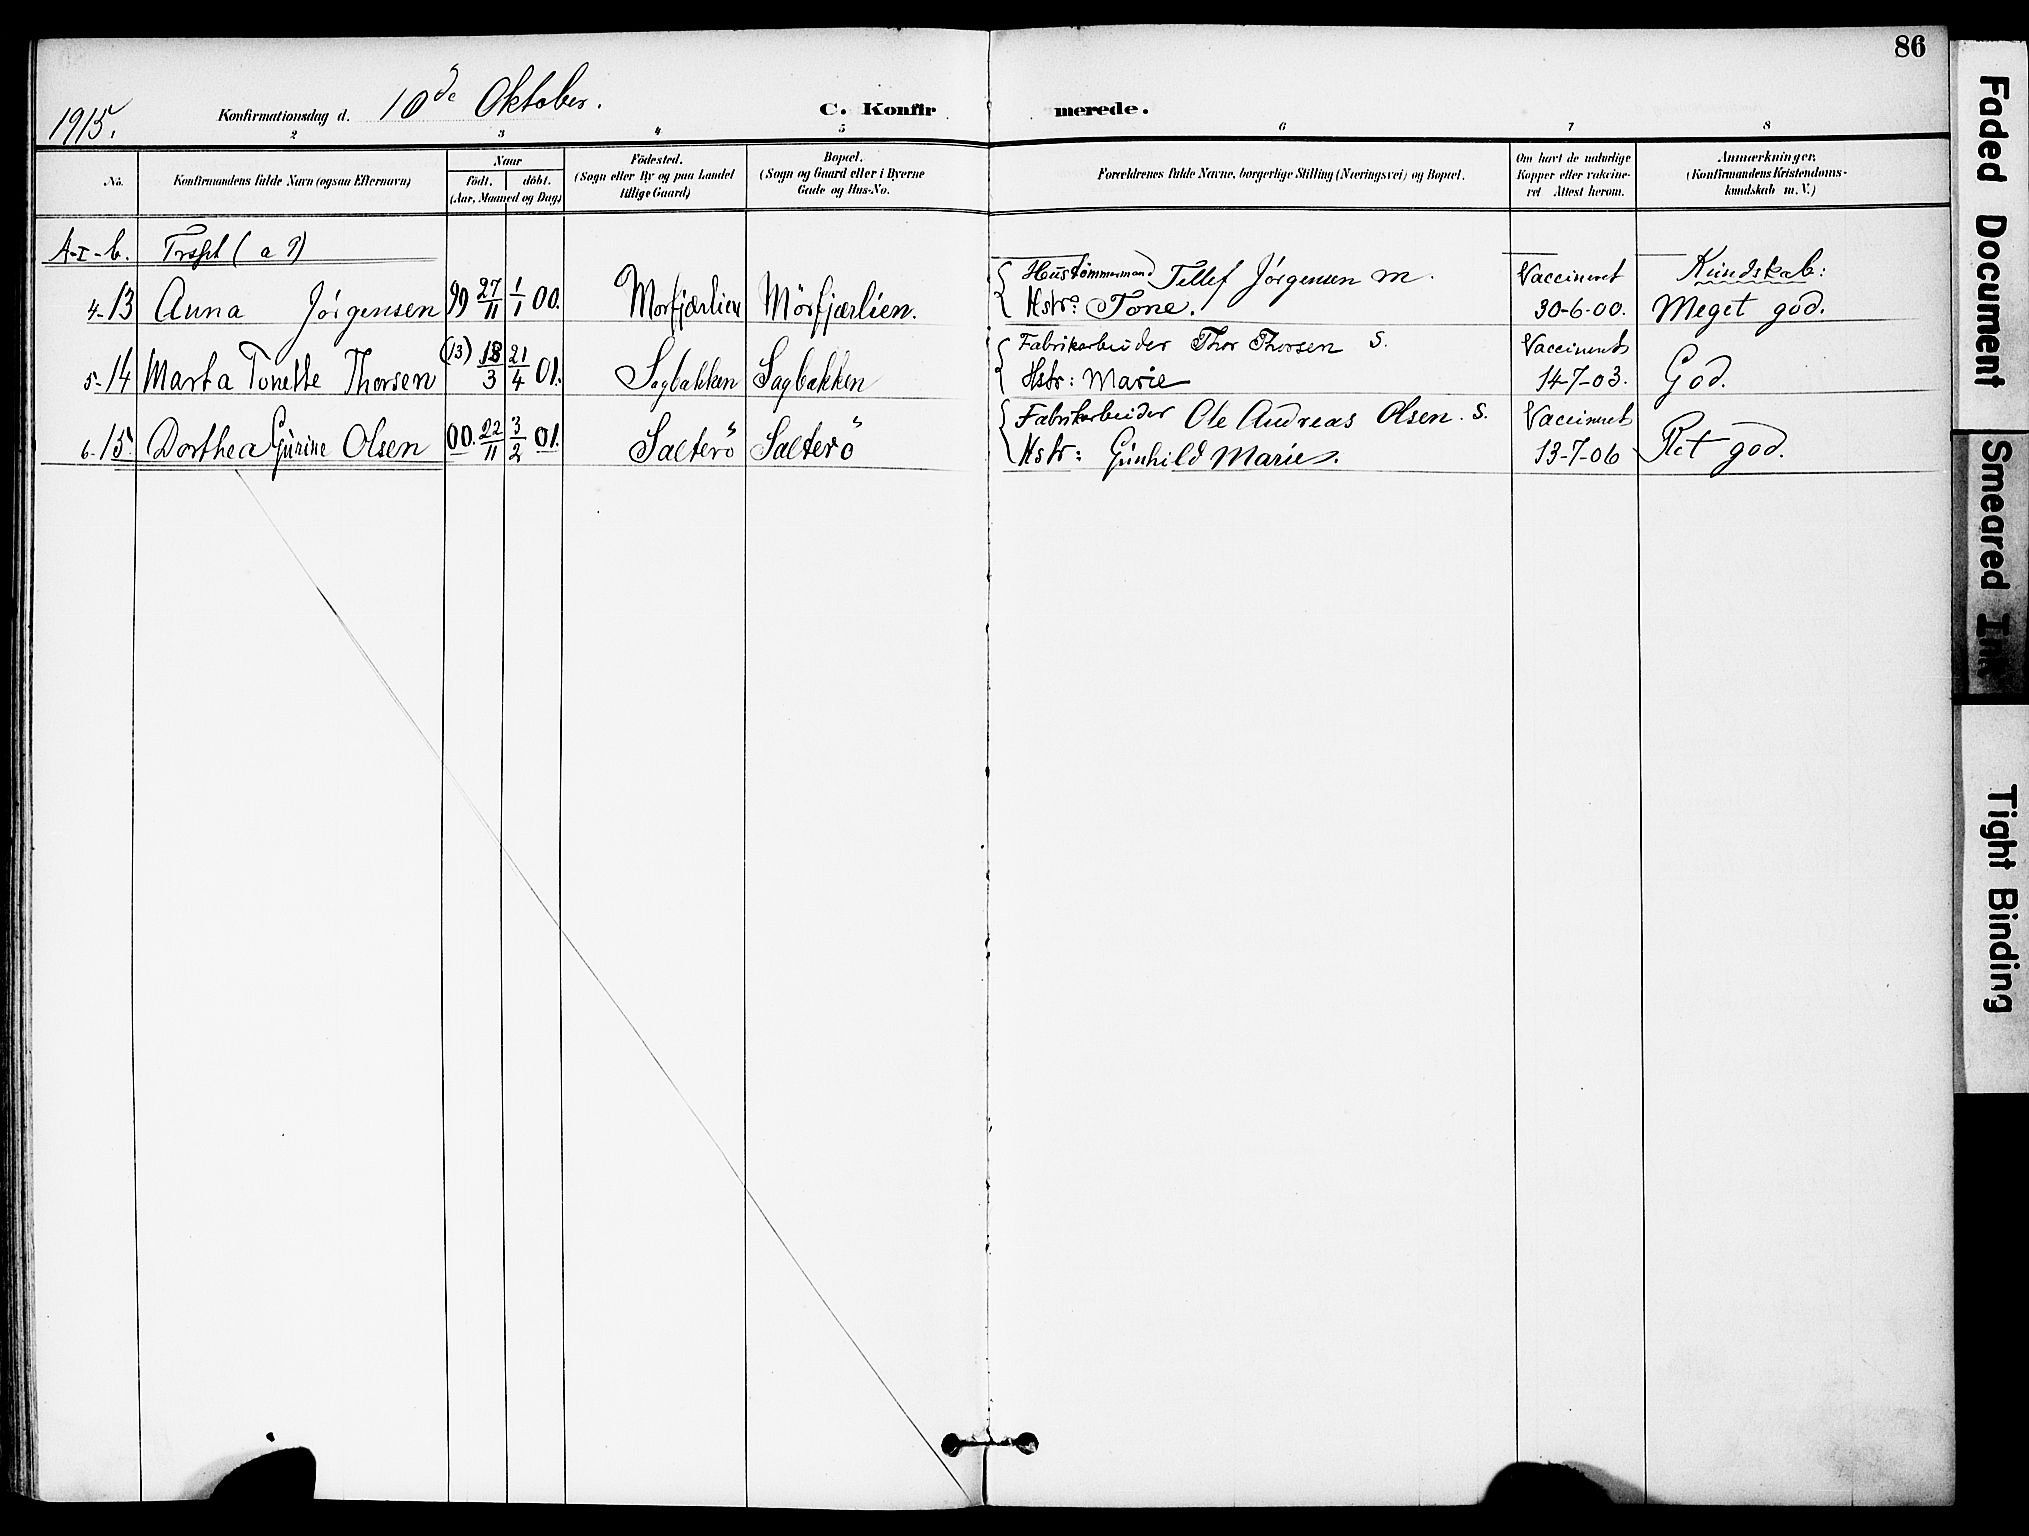 86
1915. Konfirmationsdag d. 10de Oktober. C. Konfir merede.
2 3 4 5 6 7 8
No.
Konfirmandens fulde Navn (ogsaa Efternavn)
Naar
födt. döbt.
(Aar, Maaned og Dag)
Födested.
(Sogn eller By og paa Landet
tillige Gaard)
Bopæl.
(Sogn og Gaard eller i Byerne
Gade og Hus-No.
Forældrenes fulde Navne, borgerlige Stilling (Næringsvei) og Bopæl.
Om havt de naturlige
Kopper eller vakcine-
ret Attest herom.
Anmærkninger,
(Konfirmandens Kristendoms-
kundskab m. V.)
A-I-b.
4-13 Anna Jörgensen 99 27/11 1/1 00. Morfjærlien Mörfjærlien. Hustömmermand Tellef Jörgensen M. Vaccineret Kundskab:
Hstr: Tone. 30-6-00. Meget god.
5-14 Marta Tonette Thorsen (13) 18/3 21/4 01. Sagbakken Sagbakken Fabrikarbeider Thor Thorsen S. Vaccineret God.
Hstr: Marie 14-7-03.
6-15. Dorthea Gurine Olsen 00. 22/11 3/2 01. Salterö Salterö Fabrikarbeider Ole Andreas Olsen. S. Vaccineret Ret god.
Hstr: Gunhild Marie. 13-7-06
Faded Document
Smeared Ink
Tight Binding